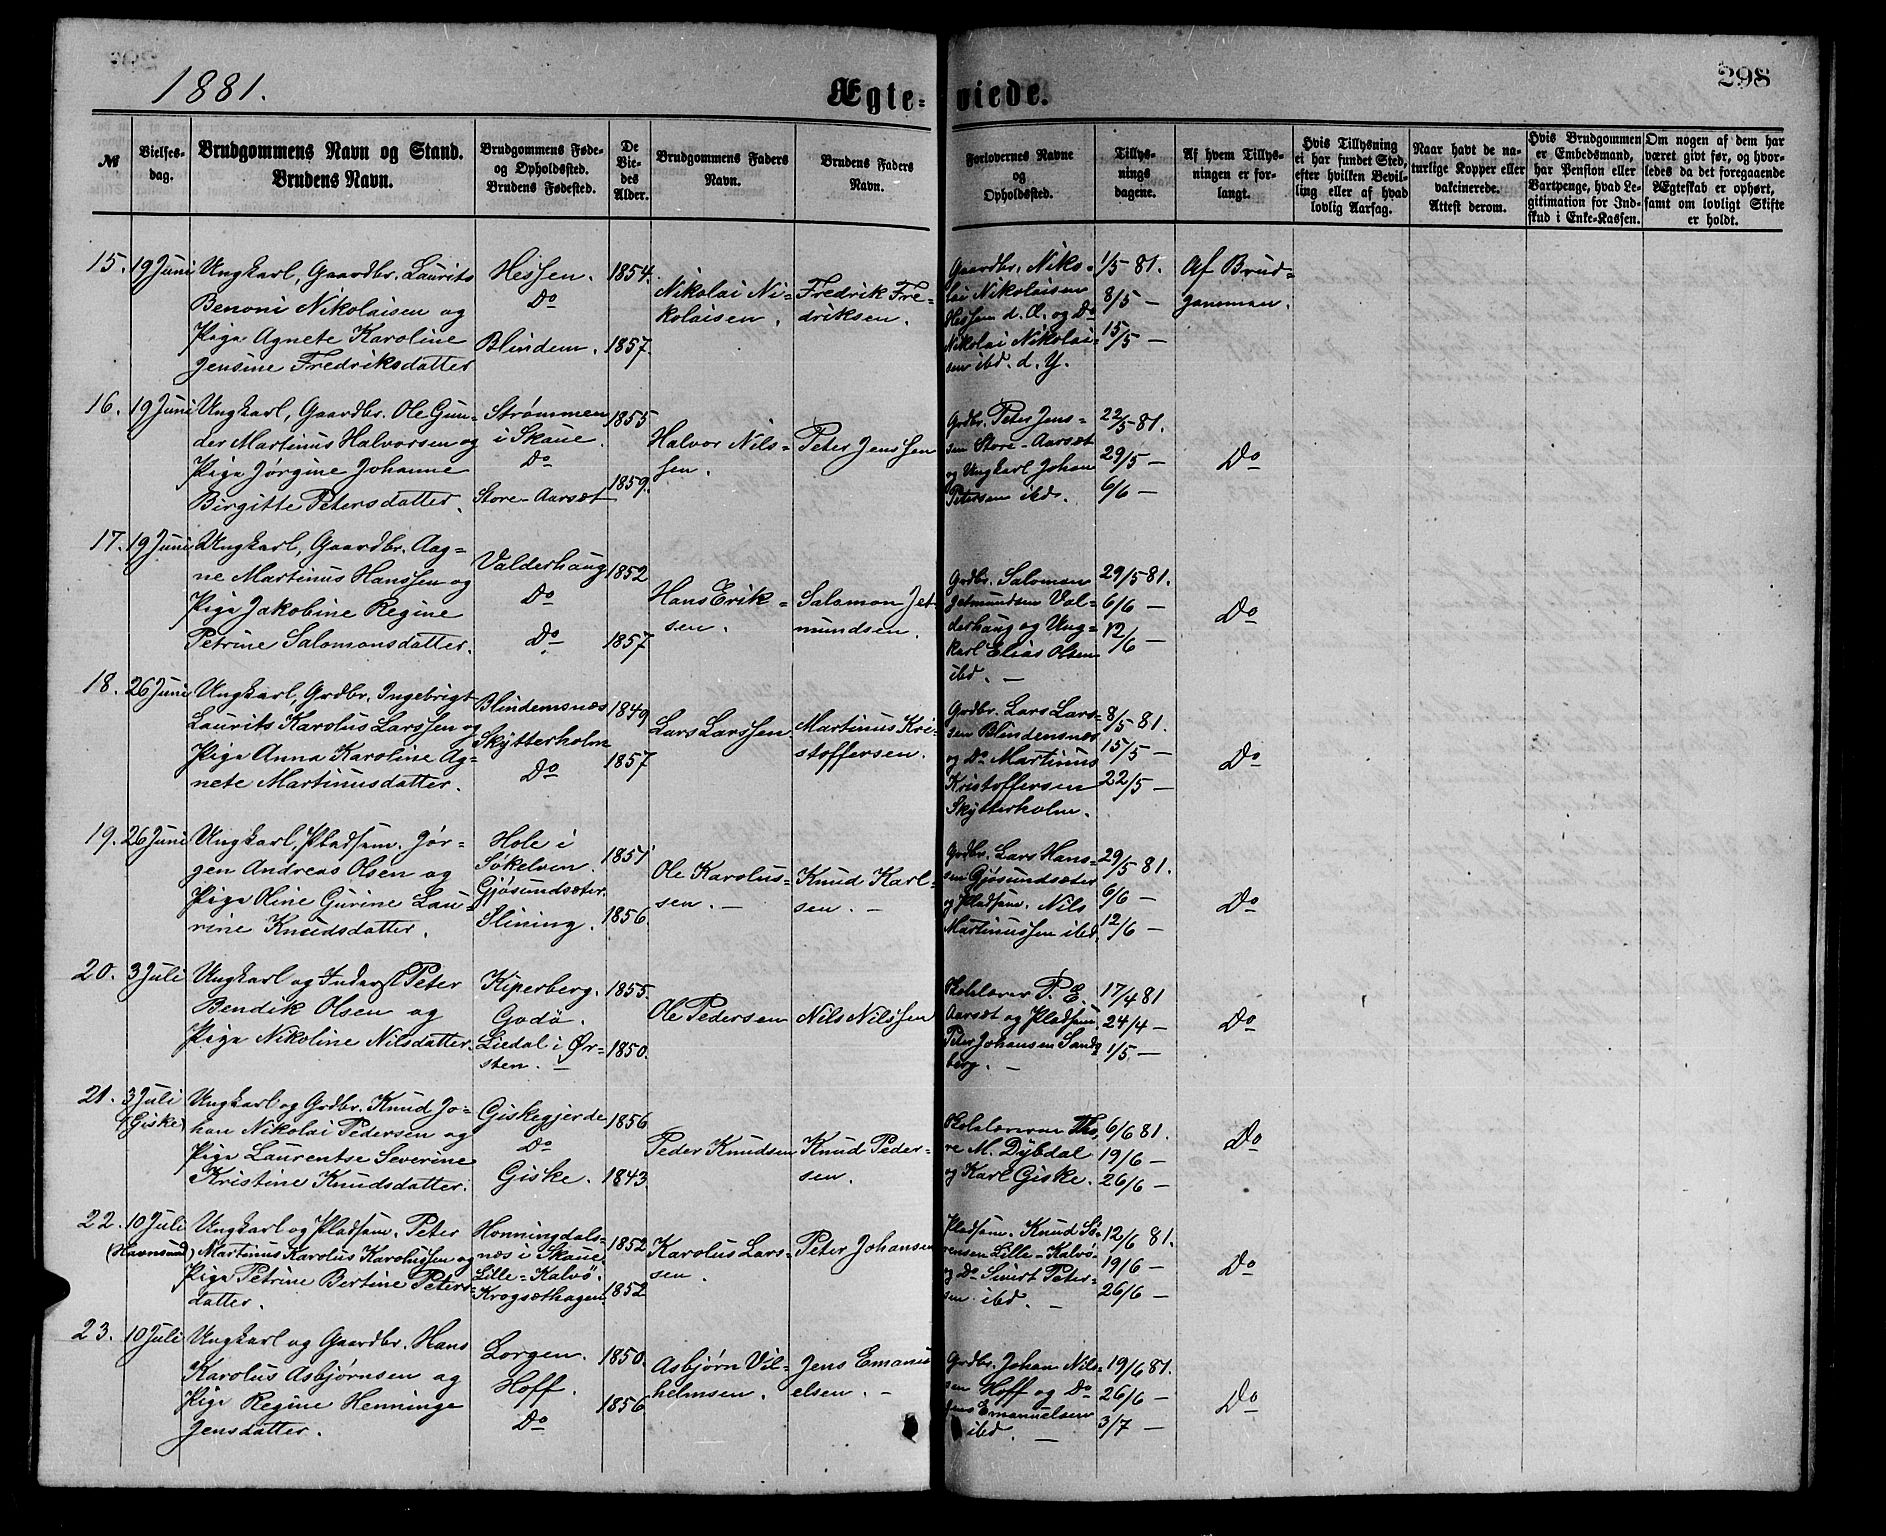 1881.
Ægte-viede.
298
№
Vielses-
dag.
Brudgommens Navn og Stand.
Brudens Navn.
Brudgommens Føde-
og Opholdssted.
Brudens Fødested.
De
Vie-
des
Alder.
Brudgommens Faders
Navn.
Brudens Faders
Navn.
Forlovernes Navne
og
Opholdssted.
Tillys-
nings
dagene.
Af hvem Tillys-
ningen er for-
langt.
Hvis Tillysning
ei har fundet Sted,
efter hvilken Bevil-
ling eller af hvad
lovlig Aarsag.
Naar havt de na-
turlige Kopper eller
vakcinerede.
Attest derom.
Hvis Brudgommen
er Embedsmand,
har Pension eller
Vartpenge, hvad Le-
gitimation for Ind-
skud i Enke-Kassen.
Om nogen af dem har
været givt før, og hvor-
ledes da det foregaaende
Ægteskab er ophørt,
samt om lovligt Skifte
er holdt.
15. 19 Juni
Ungkarl, Gaardbr. Laurits
Benoni Nikolaisen og
Pige Agnete Karoline
Jensine Fredriksdatter
Hessen.
Do
Blindem.
1854.
1857.
Nikolai Ni-
kolaisen.
Fredrik Fre-
driksen.
Gaardbr. Niko-
lai Nikolaisen
Hessen d. Æ. og Do
Nikolai Nikolai-
sen ibd. d. Y.
1/5 81.
8/5 —
15/5 —
Af Brud-
gommen.
16. 19 Juni
Ungkarl, Gaardbr. Ole Gun-
der Martinus Halvorsen og
Pige Jørgine Johanne
Birgitte Petersdatter.
Strømmen
i Skaue.
Do
Store-Aarsæt
1855
1859.
Halvor Nils-
sen.
Peter Jenssen
Grdbr. Peter Jens-
sen Store-Aarsæt
og Ungkarl Johan
Petersen ibd.
22/5 81.
29/5 —
6/6 —
Do
17. 19 Juni
Ungkarl, Gaardbr. Aag-
ne Martinus Hanssen og
Pige Jakobine Regine
Petrine Salomonsdatter.
Valderhaug
Do
Do
1852
1857
Hans Erik-
sen.
Salomon Jet-
mundsen.
Grdbr. Salomon
Jetmundsen Val-
derhaug og Ung-
karl Elias Olsen
ibd. —
29/5 81.
6/6 —
12/6 —
Do
18. 26 Juni
Ungkarl, Grdbr. Ingebrigt
Laurits Karolus Larssen og
Pige Anna Karoline Ag-
nete Martinusdatter.
Blindemsnæs
Skytterholm
Do
1849
1857
Lars Larssen
Martinus Kri-
stoffersen.
Grdbr. Lars Lars-
sen Blindemsnæs
og Do Martinus
Kristoffersen
Skytterholm.
8/5 81.
15/5 —
22/5 —
Do
19. 26 Juni
Ungkarl, Pladsm. Jør-
gen Andreas Olsen og
Pige Oline Gurine Lau-
rine Knudsdatter.
Hole i
Søkelven.
Gjøsundsæter.
Slining.
1851
1856.
Ole Karolus-
sen. —
Knud Karl-
sen. —
Grdbr. Lars Hans-
sen Gjøsundsæter
og Pladsm. Nils
Martinussen ibd.
29/5 81.
6/6 —
12/6 —
Do
20. 3 Juli
Ungkarl og Inderst Peter
Bendik Olsen og
Pige Nikoline Nilsdatter.
Kiperberg.
Godø.
Liedal i Ør-
sten. —
1855.
1850.
Ole Pedersen
Nils Nilssen
Skolelærer P. E.
Aarsæt og Pladsm.
Peter Johansen Sand-
berg. —
17/4 81
24/4 —
1/5 —
Do
21. 3 Juli
(Giske)
Ungkarl og Grdbr. Knud Jo-
han Nikolai Pedersen og
Pige Laurentse Severine
Kristine Knudsdatter.
Giskegjerde
Do
Giske.
1856
1843
Peder Knudsen
Knud Peder-
sen.
Skolelærerne Tho-
re M. Dybdal
og Karl Giske.
6/6 81.
19/6 —
26/6 —
Do
22. 10 Juli
(Havnsund)
Ungkarl og Pladsm. Peter
Martinus Karolus Karolussen og
Pige Petrine Bertine Peters-
datter.
Honningdals-
næs i Skaue.
Lille-Kalvø.
Krogsæthagen.
1852
1852
Karolus Lars-
sen.
Peter Johansen
Pladsm. Knud Sø-
rensen Lille-Kalvø
og Do Sivert Peter-
sen ibd. —
12/6 81.
19/6 —
26/6 —
Do
23. 10 Juli
Ungkarl og Gaardbr. Hans
Karolus Asbjørnsen og
Pige Regine Henninge
Jensdatter.
Lorgen.
Hoff.
Do
1850.
1856
Asbjørn Vil-
helmsen.
Jens Emanu-
elsen. —
Grdbr. Johan Nils-
sen Hoff og Do
Jens Emanuelsen
ibd. —
19/6 81.
26/6 —
3/7 —
Do